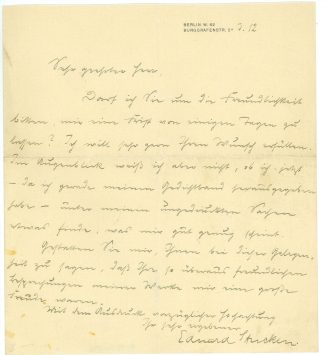 BERLIN W. 62
BURGGRAFENSTR. 2ᴵ 3. 12
Sehr geehrter Herr.
Darf ich Sie um die Freundlichkeit
bitten, mir eine Frist von einigen Tagen zu
lassen? Ich will sehr gern Ihren Wunsch erfüllen.
Im Augenblick weiß ich aber nicht, ob ich jetzt
– da ich gerade meinen Gedichtband herausgegeben
habe – unter meinen ungedruckten Sachen
etwas finde, was mir gut genug scheint.
Gestatten Sie mir, Ihnen bei dieser Gelegen-
heit zu sagen, daß Ihre so überaus freundlichen
Besprechungen meiner Werke mir eine große
Freude waren.
Mit dem Ausdruck vorzüglicher Hochachtung
Ihr sehr ergebener
Eduard Stucken